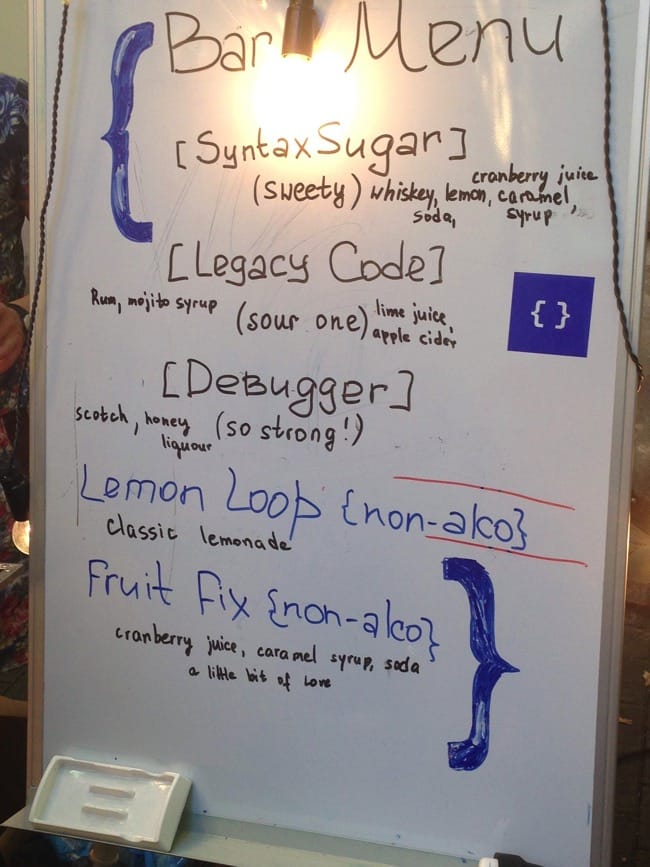 { Bar Menu
[SyntaxSugar]
(sweety) whiskey, lemon, caramel,
cranberry juice
soda, syrup
[Legacy Code]
Rum, mojito syrup (sour one) lime juice,
apple cider
{ }
[Debugger]
scotch, honey (so strong!)
liquour
Lemon Loop {non-alco}
classic lemonade
Fruit Fix {non-alco}
cranberry juice, caramel syrup, soda
a little bit of love
}